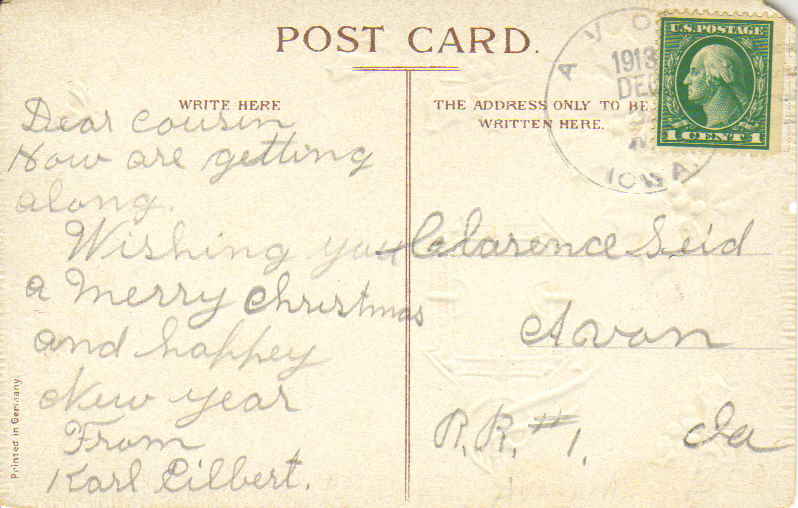 POST CARD.
WRITE HERE
THE ADDRESS ONLY TO BE
WRITTEN HERE.
AVO
1913
DEC
IOWA
U.S. POSTAGE
1 CENT 1
Dear Cousin
How are getting
along.
Wishing you
a Merry Christmas
and happey
New Year
From
Karl Gilbert.
Clarence Seid
Avon
R.R. #1. Ia
Printed in Germany